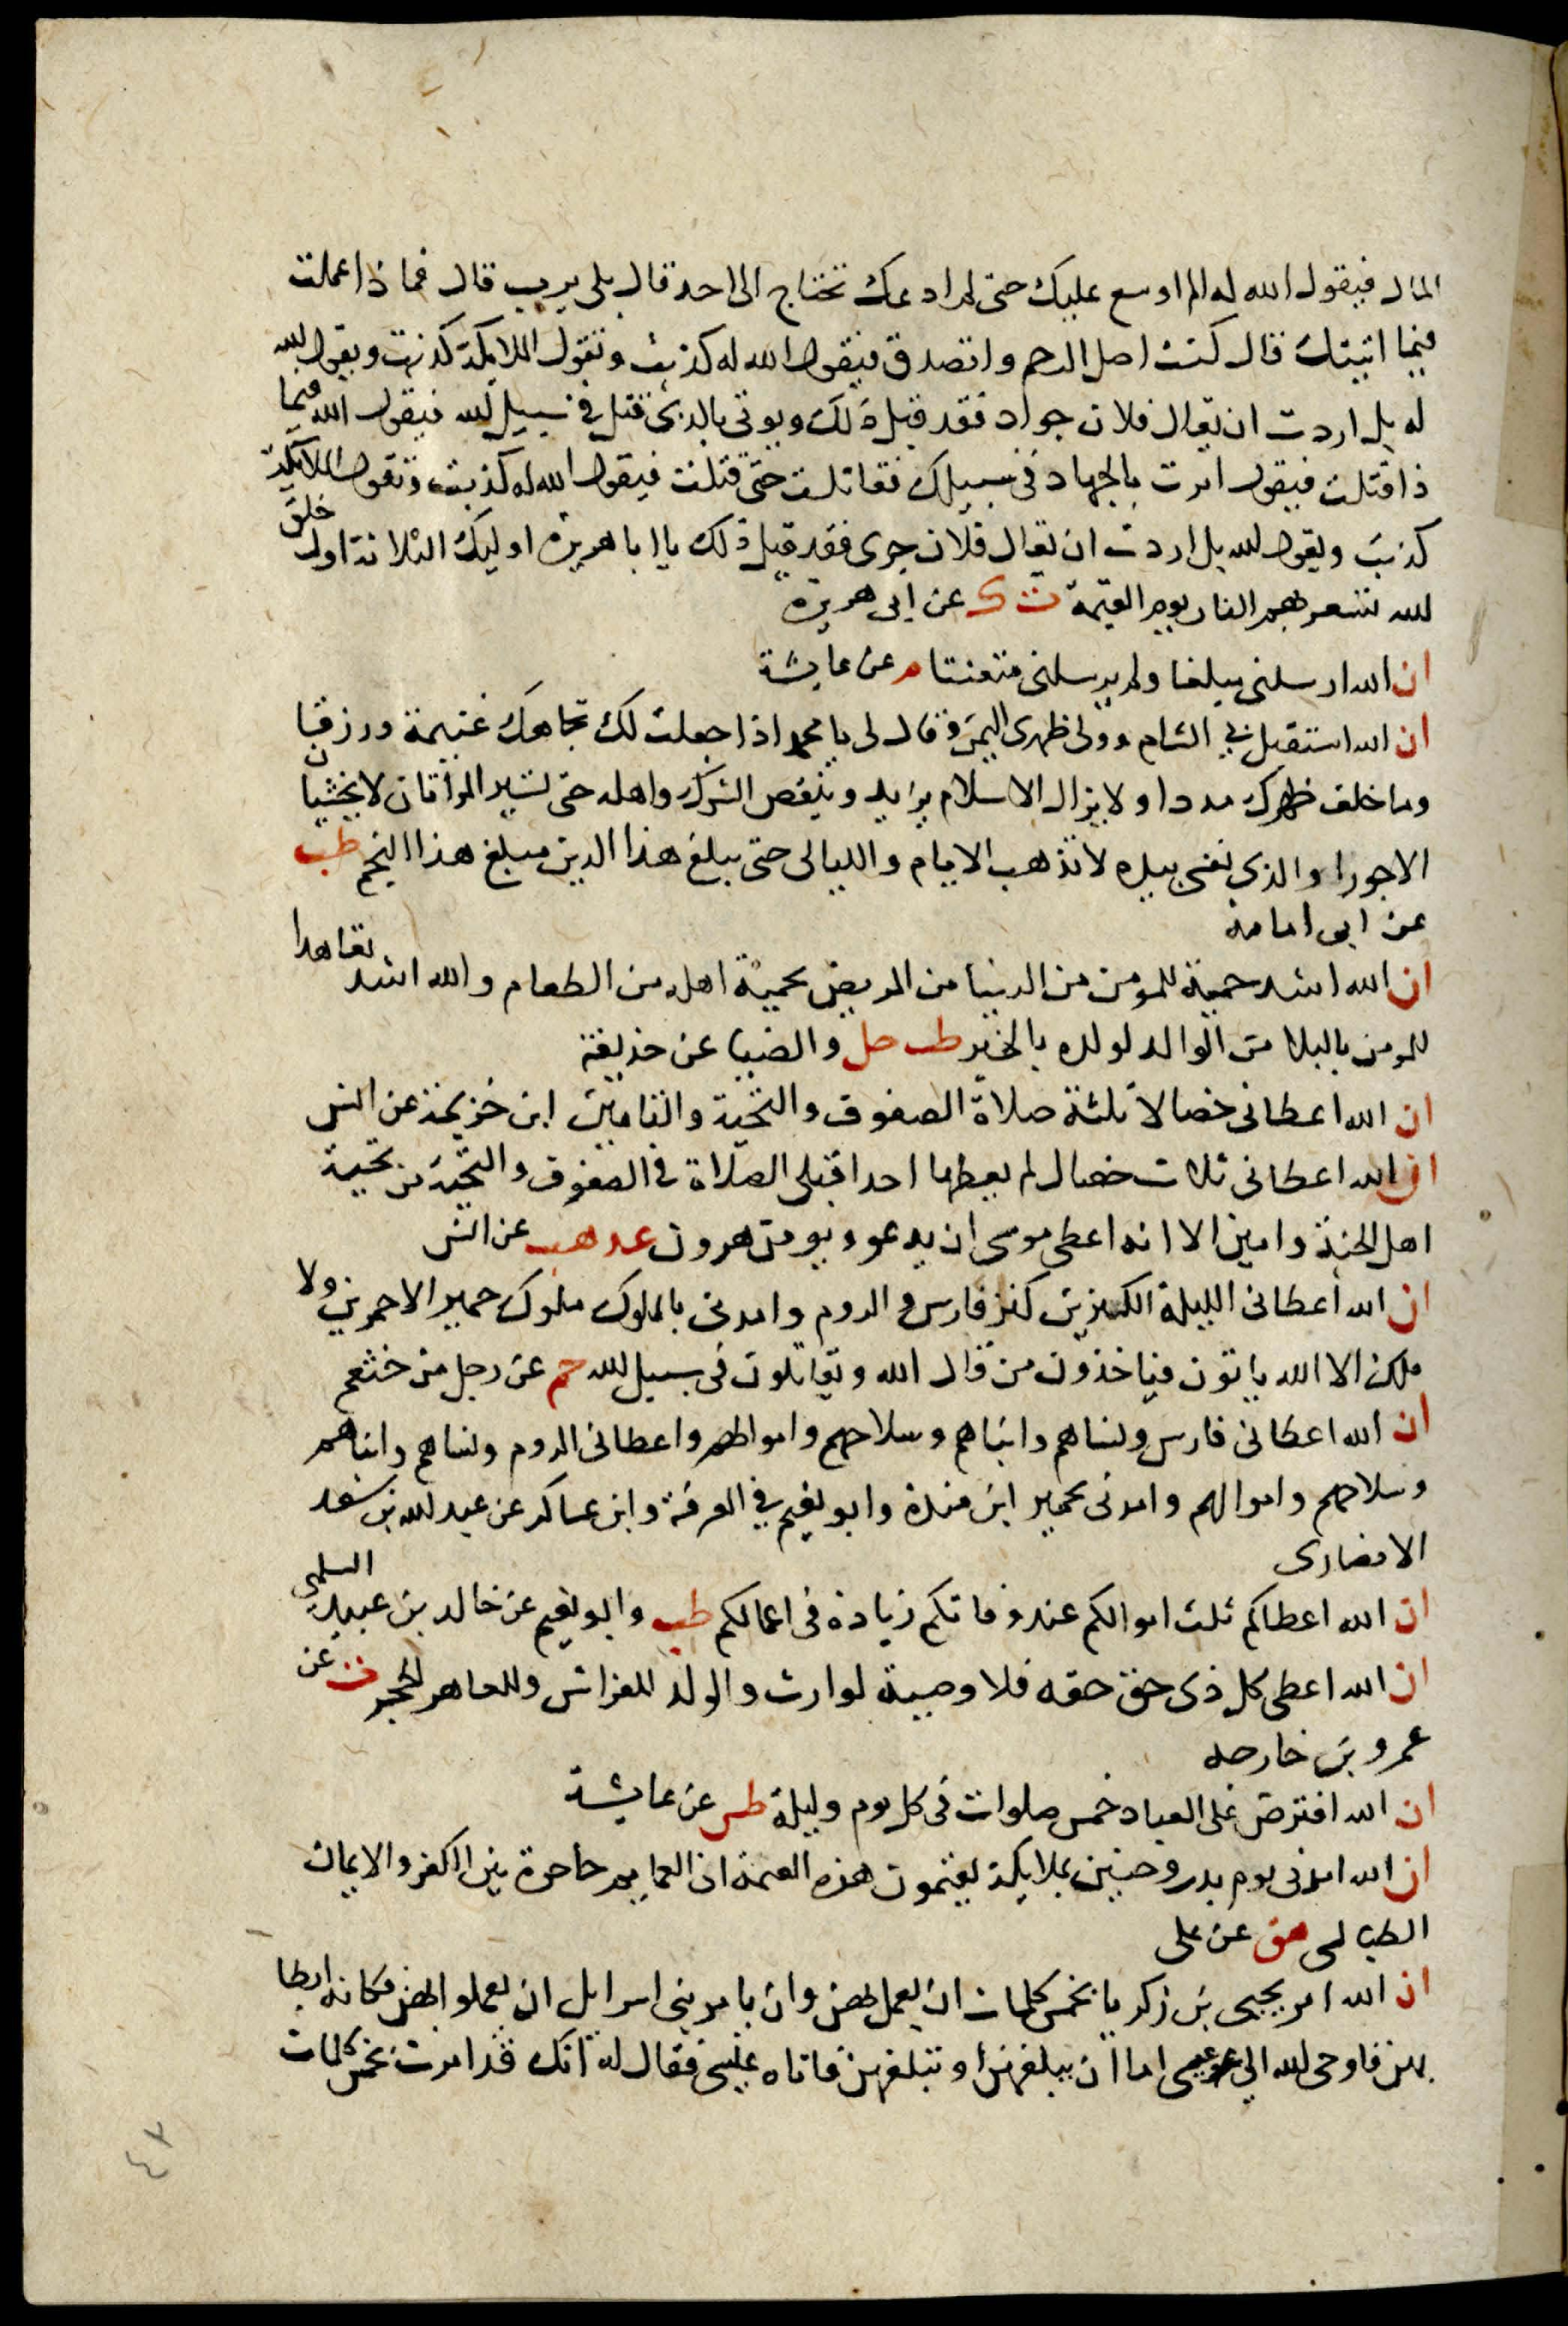 المال فيقول الله له الم اوسع عليك حتى لم ادعك تحتاج الى احد قال بلى يرب قال فماذا عملت
فيما اتيتك قال كنت اصل الرحم واتصدق فيقول الله له كذبت وتقول الملايكة كذبت ويقول لله
له بل اردت ان يقال فلان جواد فقد قيل ذلك ويوتى بالذى قتل في سبيل لله فيقول الله فيما
ذا قتلت فيقول امرت بالجهاد فى سبيلك فقاتلت حتى قتلت فيقول الله له كذبت وتقول الملايكة
كذبت ويقول لله بل اردت ان يقال فلان جرى فقد قيل ذلك يا ابا هريره اوليك الثلاثة اول خلق
لله تسعر بهم النار يوم القيمة ت ك عن ابى هريرة
ان الله ارسلنى مبلغا ولم يرسلنى متعنتا م عن عايشة
ان الله استقبل بي الشام وولى ظهرى اليمن وقال لى يا محمد انا جعلت لك تجاهك غنيمة ورزقا
وما خلف ظهرك مددا ولا يزال الاسلام يزايد وينقص الشرك واهله حتى تسير المراتان لا يخشيان
الا جورا والذى نفسي بيده لا تذهب الايام والليالى حتى يبلغ هذا الدين مبلغ هذا النجم طب
عن ابى امامة
ان الله اشد حمية للمومن من الدنيا من المريض بحمية اهله من الطعام والله اشد تعاهدا
للمومن بالبلا من الوالد لولده بالخير طب حل والضيا عن حذيفة
ان الله اعطانى خصالا ثلثة صلاة الصفوف والتحية والتامين ابن خزيمة عن انس
ان الله اعطانى ثلاث خصال لم يعطها احدا قبلى الصلاة فى الصفوف والتحية من تحية
اهل الجنة وامين الا انه اعطى موسى ان يدعو ويومن هرون عد هب عن انس
ان الله اعطانى الليلة الكنزين كنز فارس والروم وامدنى بالملوك ملوك حمير الاحمرين ولا
ملك الا الله ياتون فياخذون من مال الله ويقاتلون فى سبيل لله حم عن رجل من خثعم
ان الله اعطانى فارس ونساهم وابناهم وسلاحهم واموالهم واعطانى الروم ونساهم وابناهم
وسلاحهم واموالهم وامدنى بحمير ابن مندة وابو نعيم في المعرفة وابن عساكر عن عبد لله بن سعد
الانصارى
ان الله اعطاكم ثلث اموالكم عند وفاتكم زيادة فى اعمالكم طب وابو نعيم عن خالد بن عبيد السلمى
ان الله اعطى كل ذى حق حقه فلا وصية لوارث والولد للفراش وللعاهر الحجر ت عن
عمرو بن خارجه
ان الله افترض على العباد خمس صلوات فى كل يوم وليلة طس عن عايشة
ان الله امدنى يوم بدر وحنين بملايكة يعتمون هذه العمة ان العمايم حاجزة بين الكفر والايمان
الطيالسى هق عن على
ان الله امر يحيى بن زكريا بخمس كلمات ان يعمل بهن وان يامر بنى اسرايل ان يعملوا بهن فكانه ابطا
بهن فاوحى لله الى عيسى اما ان يبلغهن او تبلغهن فاتاه عيسى فقال له انك قد امرت بخمس كلمات
٤٣